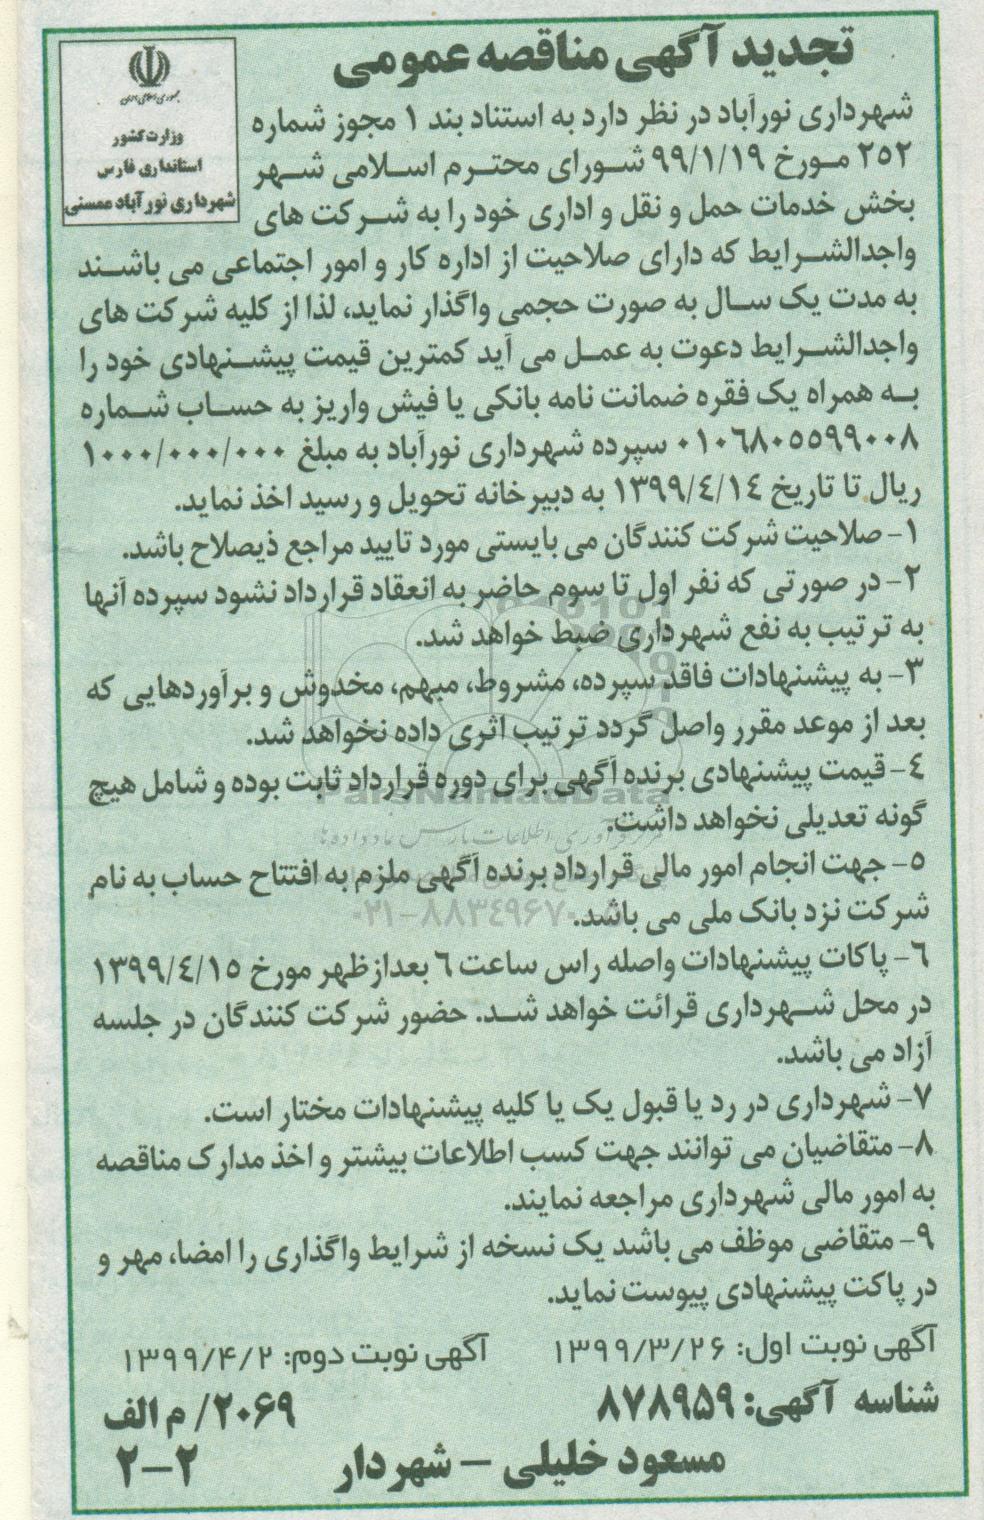 تجدید آگهی مناقصه عمومی
جمهوری اسلامی ایران
وزارت کشور
استانداری فارس
شهرداری نورآباد ممسنی
شهرداری نورآباد در نظر دارد به استناد بند ۱ مجوز شماره
۲۵۲ مورخ ۹۹/۱/۱۹ شورای محترم اسلامی شهر
بخش خدمات حمل و نقل و اداری خود را به شرکت های
واجدالشرایط که دارای صلاحیت از اداره کار و امور اجتماعی می باشند
به مدت یک سال به صورت حجمی واگذار نماید، لذا از کلیه شرکت های
واجدالشرایط دعوت به عمل می آید کمترین قیمت پیشنهادی خود را
به همراه یک فقره ضمانت نامه بانکی یا فیش واریز به حساب شماره
۰۱۰۶۸۰۵۵۹۹۰۰۸ سپرده شهرداری نورآباد به مبلغ ۱۰۰۰/۰۰۰/۰۰۰
ریال تا تاریخ ۱۳۹۹/۴/۱۴ به دبیرخانه تحویل و رسید اخذ نماید.
۱- صلاحیت شرکت کنندگان می بایستی مورد تایید مراجع ذیصلاح باشد.
۲- در صورتی که نفر اول تا سوم حاضر به انعقاد قرارداد نشود سپرده آنها
به ترتیب به نفع شهرداری ضبط خواهد شد.
۳- به پیشنهادات فاقد سپرده، مشروط، مبهم، مخدوش و برآوردهایی که
بعد از موعد مقرر واصل گردد ترتیب اثری داده نخواهد شد.
۴- قیمت پیشنهادی برنده آگهی برای دوره قرارداد ثابت بوده و شامل هیچ
ParsNamadData
گونه تعدیلی نخواهد داشت.
۵- جهت انجام امور مالی قرارداد برنده آگهی ملزم به افتتاح حساب به نام
شرکت نزد بانک ملی می باشد.
۰۲۱-۸۸۳۴۹۶۷۰
۶- پاکات پیشنهادات واصله راس ساعت ۶ بعدازظهر مورخ ۱۳۹۹/۴/۱۵
در محل شهرداری قرائت خواهد شد. حضور شرکت کنندگان در جلسه
آزاد می باشد.
۷- شهرداری در رد یا قبول یک یا کلیه پیشنهادات مختار است.
۸- متقاضیان می توانند جهت کسب اطلاعات بیشتر و اخذ مدارک مناقصه
به امور مالی شهرداری مراجعه نمایند.
۹- متقاضی موظف می باشد یک نسخه از شرایط واگذاری را امضا، مهر و
در پاکت پیشنهادی پیوست نماید.
آگهی نوبت اول: ۱۳۹۹/۳/۲۶ آگهی نوبت دوم: ۱۳۹۹/۴/۲
شناسه آگهی: ۸۷۸۹۵۹ ۲۰۶۹/ م الف
مسعود خلیلی – شهردار ۲-۲